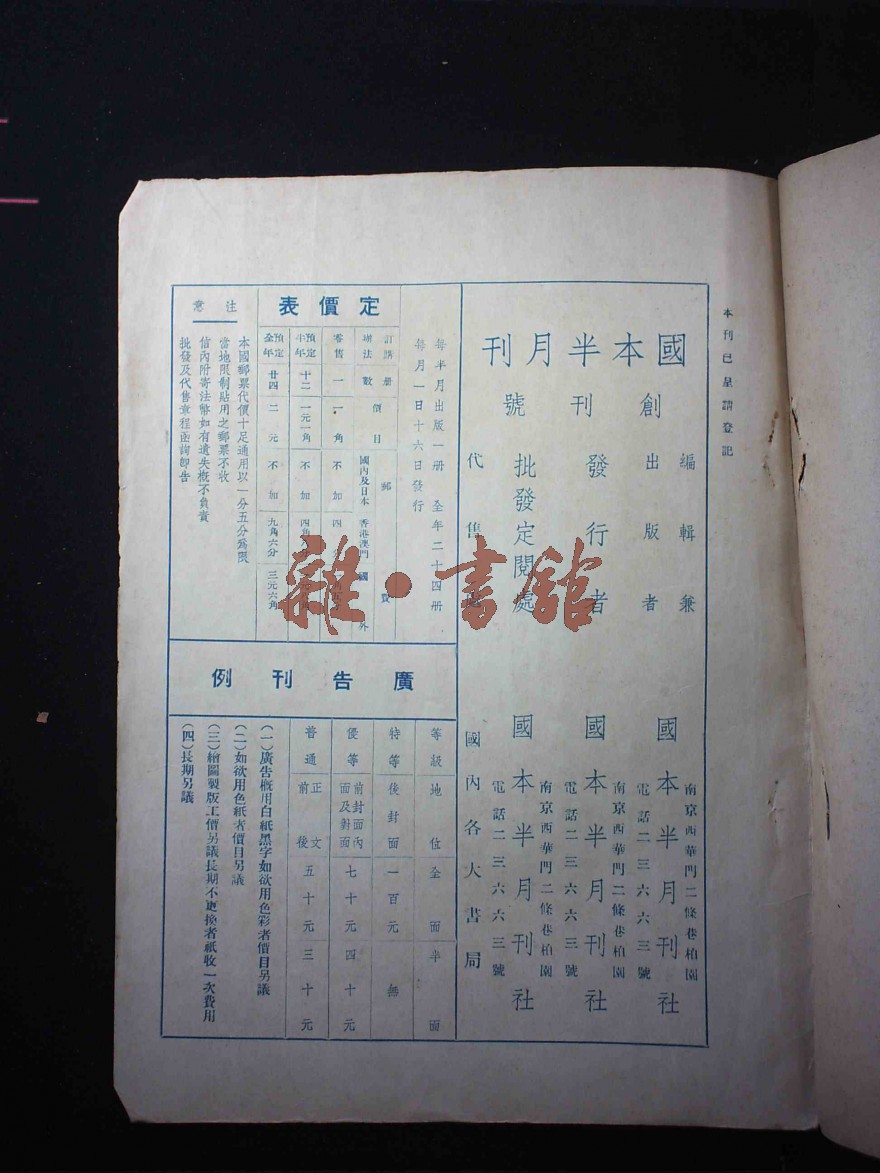 本刊已呈請登記
國本半月刊
創刊號
編輯兼
出版者
國本半月刊社
南京西華門二條巷柏園
電話二三六六三號
發行者
國本半月刊社
南京西華門二條巷柏園
電話二三六六三號
批發定閱處
國本半月刊社
南京西華門二條巷柏園
電話二三六六三號
代售
國內各大書局
每半月出版一册 全年二十四册
每月一日十六日發行
定價表
訂購辦法 册數 價目 郵費
國內及日本 香港澳門 國外
零售 一 一角 不加 四
預定半年 十二 一元一角 不加 四角
預定全年 廿四 二元 不加 九角六分 三元六角
注意
本國郵票代價十足通用以一分五分爲限
當地限制貼用之郵票不收
信內附寄法幣如有遺失概不負責
批發及代售章程函詢即告
廣告刊例
等級 地位 全面 半面
特等 後封面 一百元 無
優等 前封面內面及對面 七十元 四十元
普通 正文前後 五十元 三十元
(一)廣告概用白紙黑字如欲用色彩者價目另議
(二)如欲用色紙者價目另議
(三)繪圖製版工價另議長期不更換者祇收一次費用
(四)長期另議
雜·書館